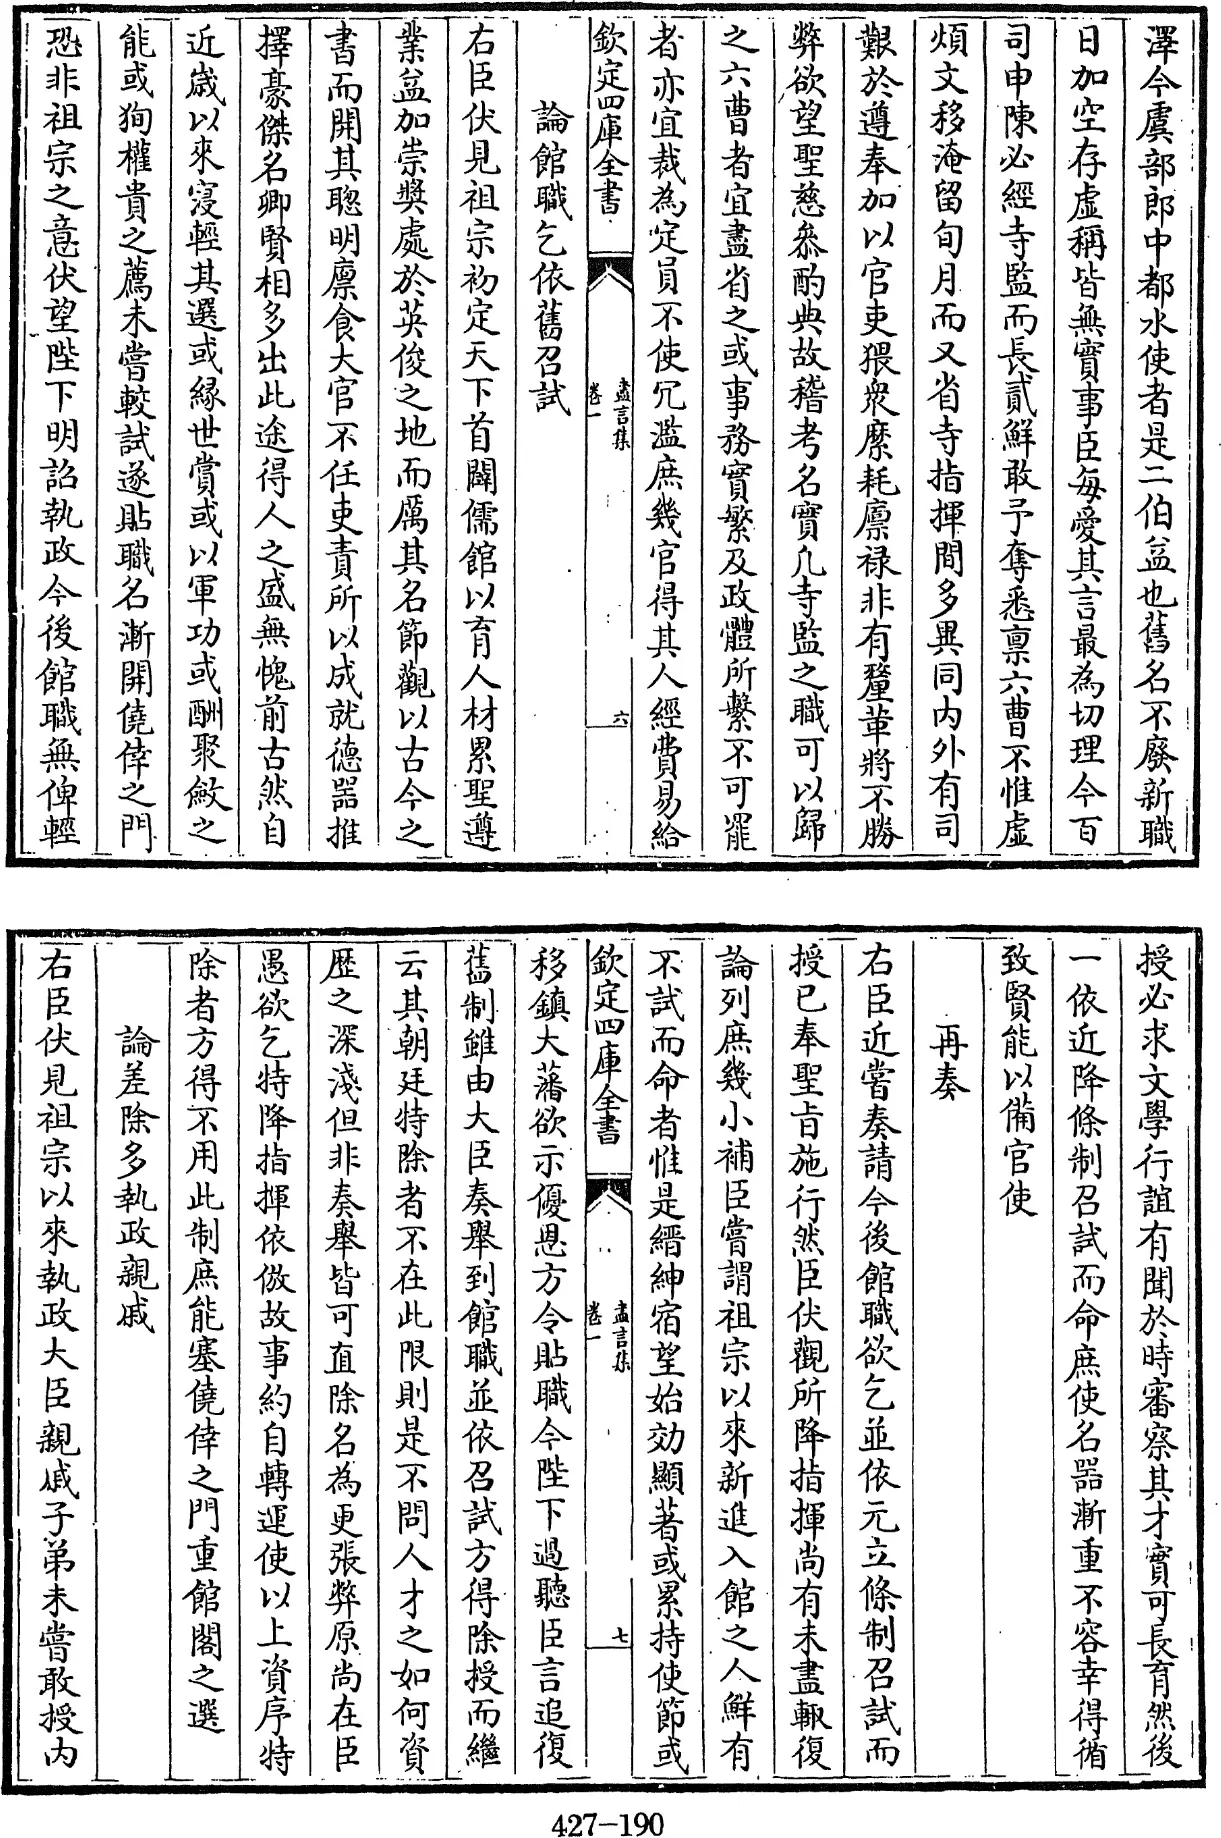 澤今虞部郎中都水使者是二伯益也舊名不廢新職
日加空存虛稱皆無實事臣每愛其言最為切理今百
司申陳必經寺監而長貳鮮敢予奪悉禀六曹不惟虛
煩文移淹留旬月而又省寺指揮間多異同内外有司
艱於遵奉加以官吏猥衆縻耗廪禄非有釐革將不勝
弊欲望聖慈叅酌典故稽考名實凡寺監之職可以歸
之六曹者宜盡省之或事務實繁及政體所繫不可罷
者亦宜裁為定員不使冗濫庶幾官得其人經費易給
欽定四庫全書
盡言集
卷一
六
論館職乞依舊召試
右臣伏見祖宗初定天下首闢儒館以育人材累聖遵
業益加崇奬處於英俊之地而厲其名節觀以古今之
書而開其聰明廪食大官不任吏責所以成就德器推
擇豪傑名卿賢相多出此途得人之盛無愧前古然自
近歲以來寖輕其選或緣世賞或以軍功或酬聚斂之
能或狥權貴之薦未嘗較試遂貼職名漸開僥倖之門
恐非祖宗之意伏望陛下明詔執政今後館職無俾輕
授必求文學行誼有聞於時審察其才實可長育然後
一依近降條制召試而命庶使名器漸重不容幸得循
致賢能以備官使
再奏
右臣近嘗奏請今後館職欲乞並依元立條制召試而
授已奉聖旨施行然臣伏觀所降指揮尚有未盡輙復
論列庶幾小補臣嘗謂祖宗以來新進入館之人鮮有
不試而命者惟是縉紳宿望始効顯著或累持使節或
欽定四庫全書
盡言集
卷一
七
移鎮大藩欲示優恩方令貼職今陛下過聽臣言追復
舊制雖由大臣奏舉到館職並依召試方得除授而繼
云其朝廷特除者不在此限則是不問人才之如何資
歴之深淺但非奏舉皆可直除名為更張弊原尚在臣
愚欲乞特降指揮依倣故事約自轉運使以上資序特
除者方得不用此制庶能塞僥倖之門重館閣之選
論差除多執政親戚
右臣伏見祖宗以來執政大臣親戚子弟未嘗敢授内
427-190